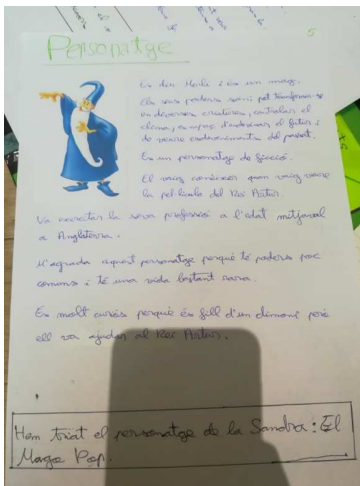 5
Personatge
Es diu Merlí i és un mag.
Els seus poders són: pot transformar-se
en diverses criatures, controlar el
clima, es capaç d'endevinar el futur i
de veure esdeveniments del passat.
És un personatge de ficció.
El vaig conèixer quan vaig veure
la pel·lícula del Rei Artur.
Va exercitar la seva professió a l'edat mitjaval
a Anglaterra.
M'agrada aquest personatge perquè té poders poc
comuns i té una vida bastant rara.
És molt curiós perquè és fill d'un dimoni però
ell va ajudar al Rei Artur.
Hem triat el personatge de la Sandra: El
Mago Pop.